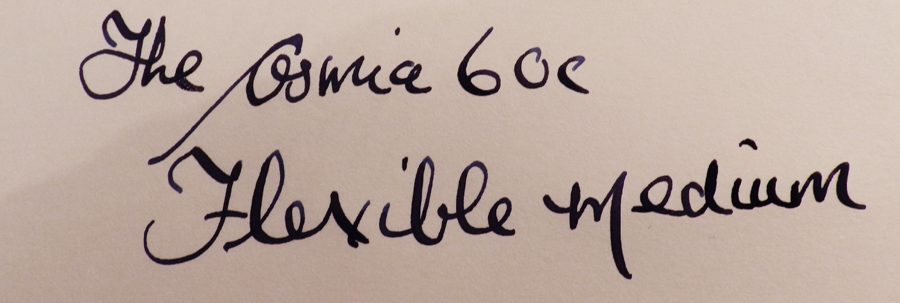 The Osmia 60c
Flexible medium